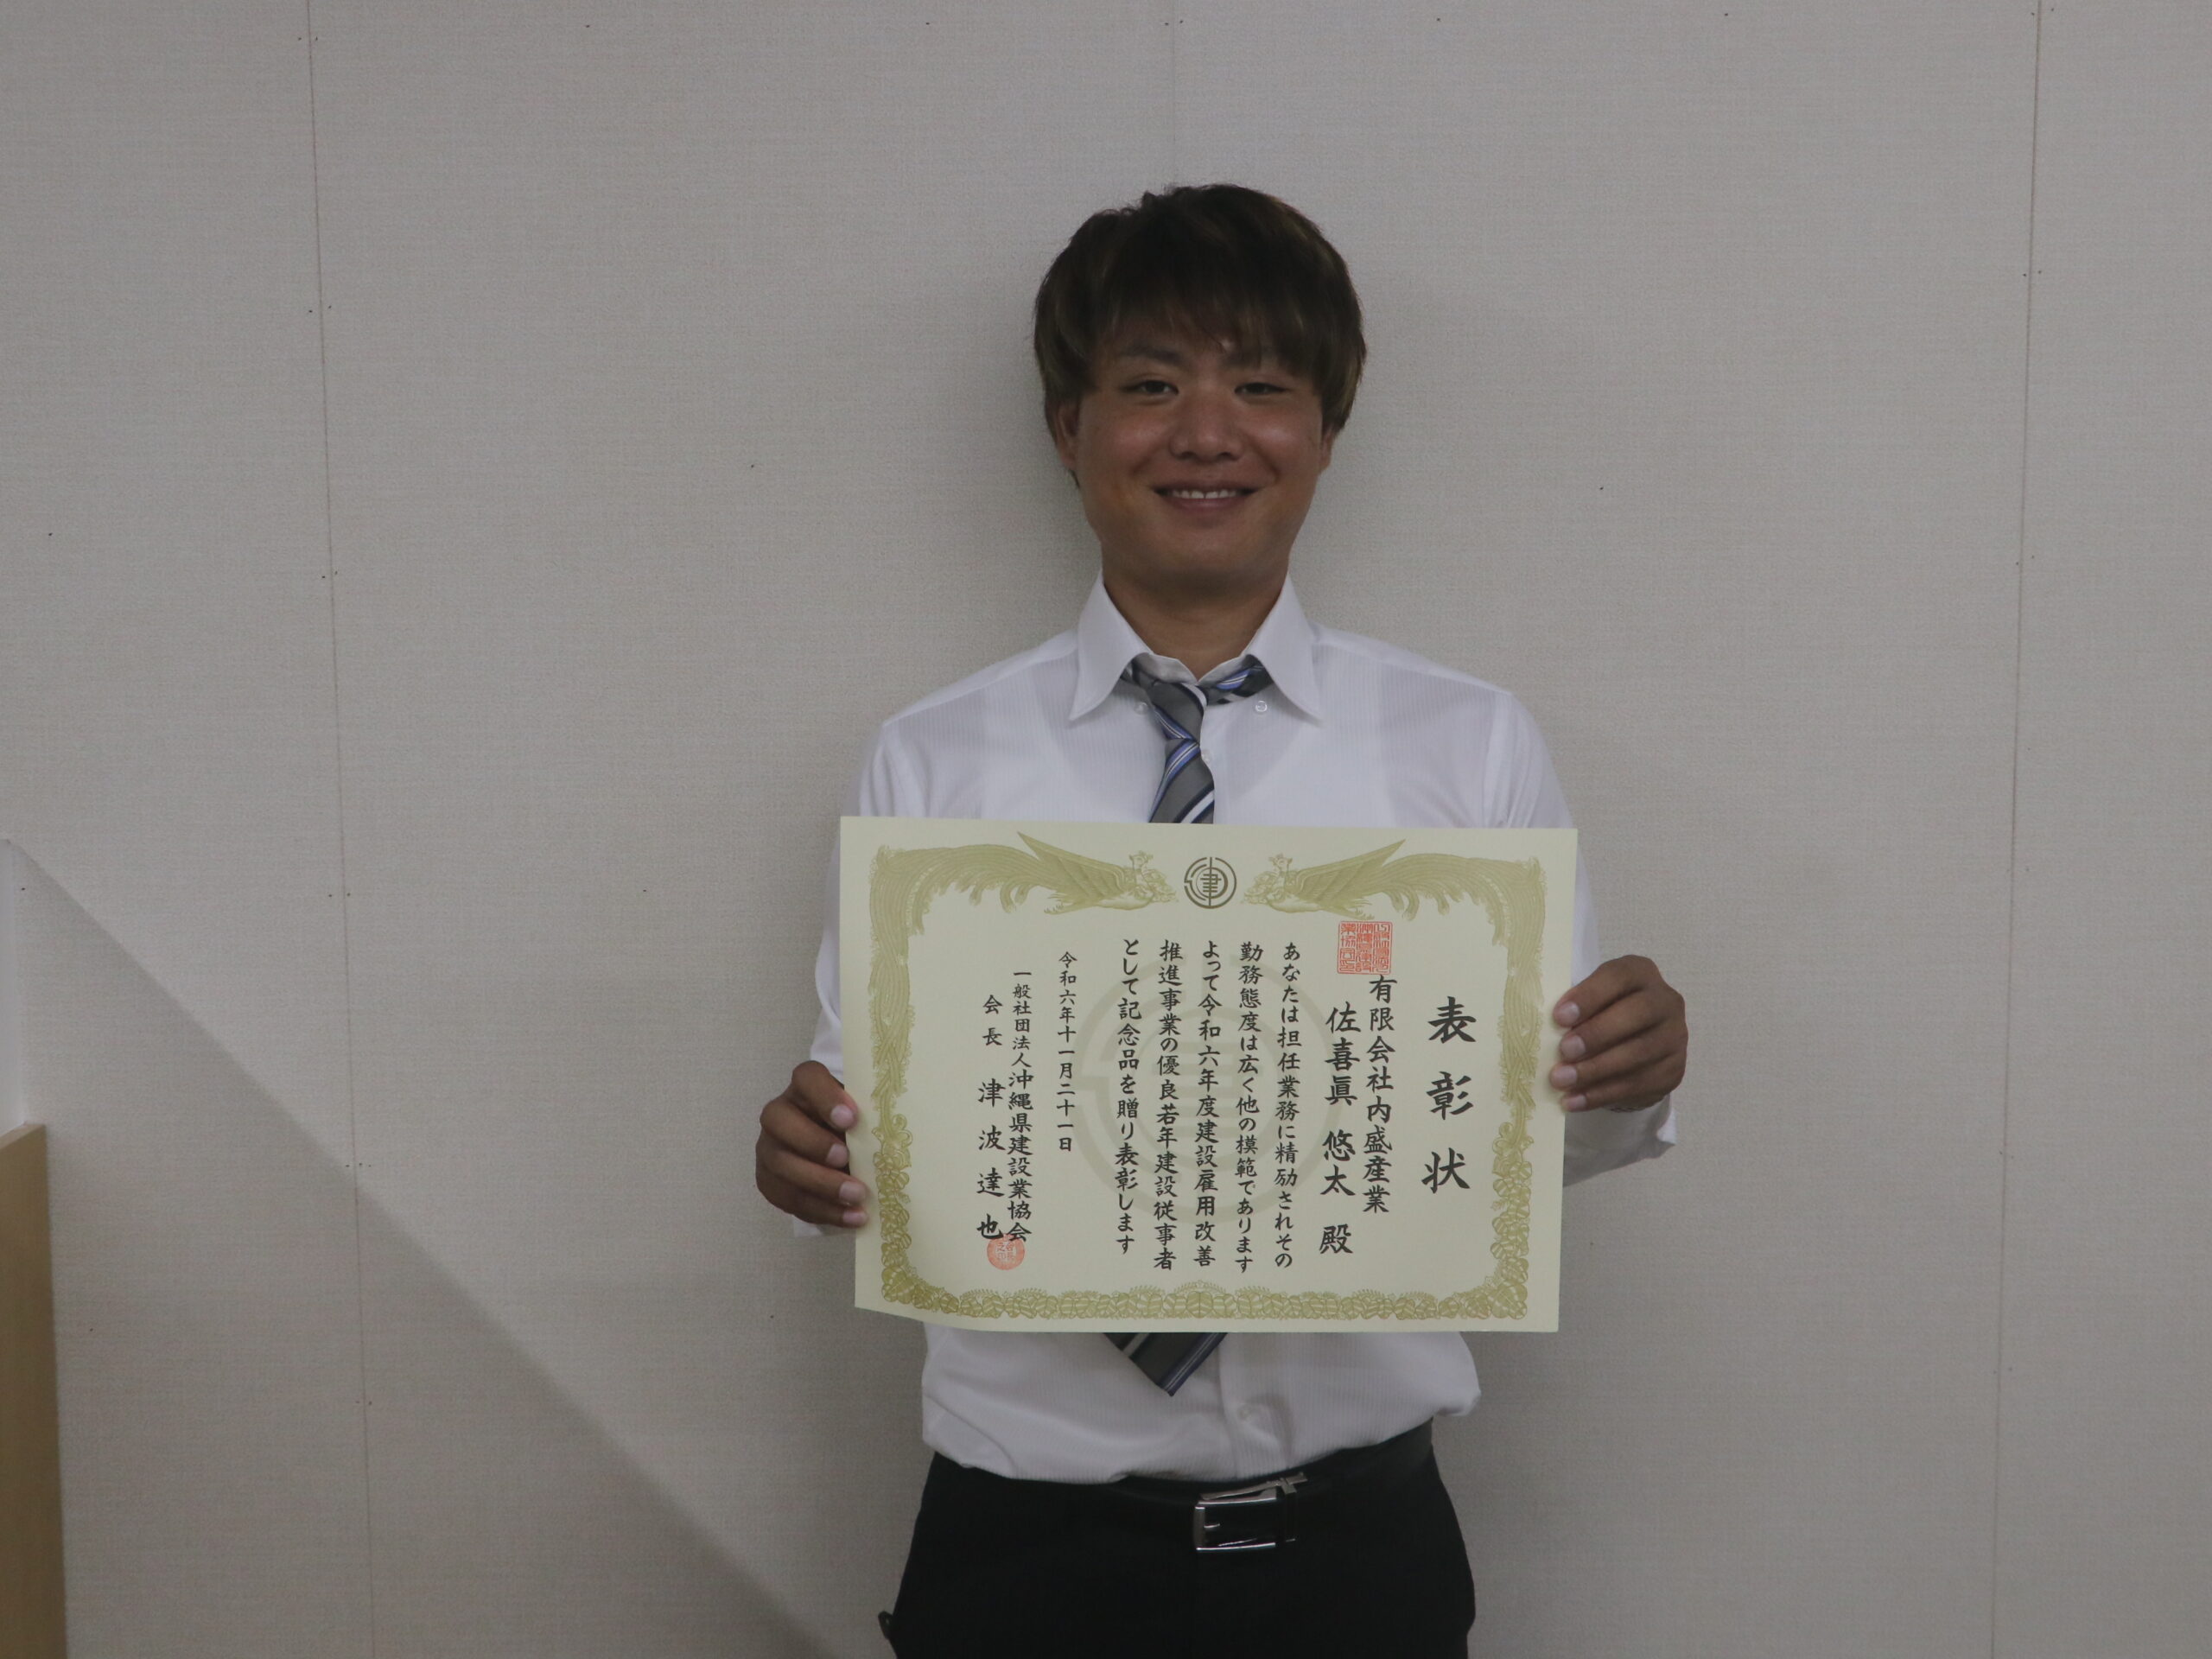 表彰状
有限会社内盛産業
佐喜眞 悠太 殿
あなたは担任業務に精励されその
勤務態度は広く他の模範であります
よって令和六年度建設雇用改善
推進事業の優良若年建設従事者
として記念品を贈り表彰します
令和六年十一月二十一日
一般社団法人沖縄県建設業協会
会長 津波達也